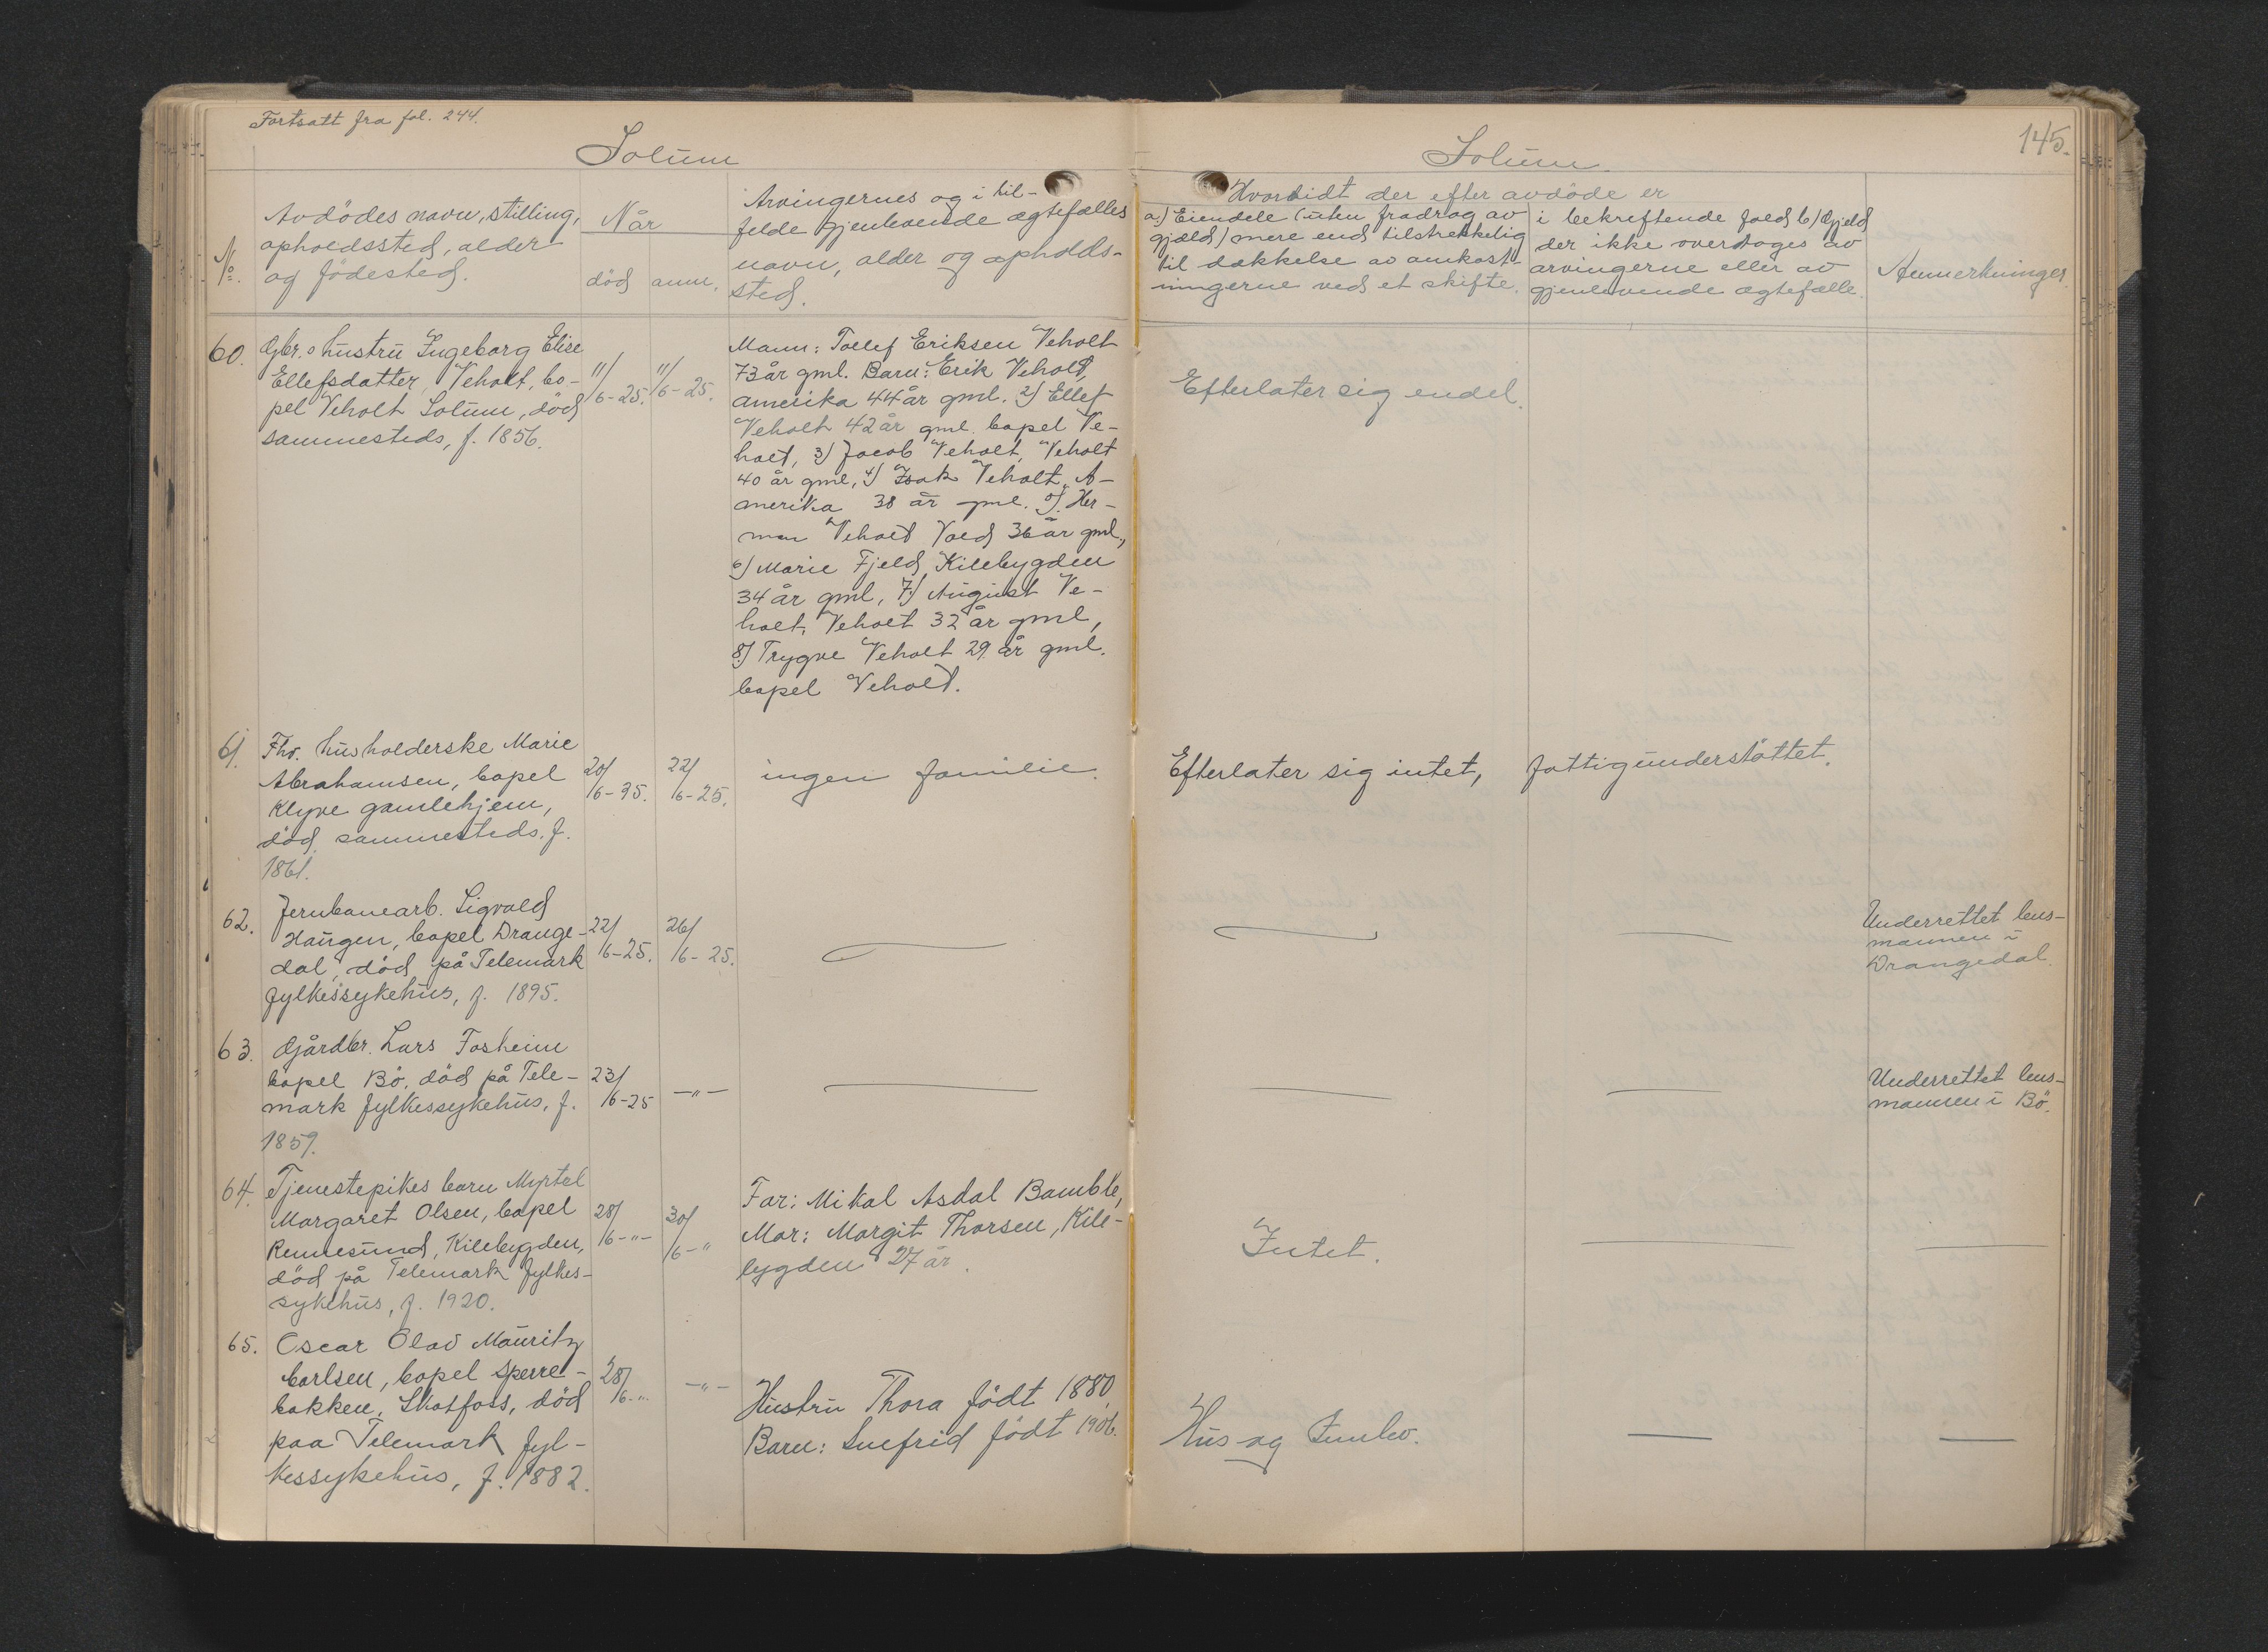 Fortsatt fra fol. 244.
Solum
Solum.
145.
No.
Avdödes navn, stilling,
opholdssted, alder
og födested.
Når
död anm.
Arvingernes og i til-
felde gjenlevende ægtefælles
navn, alder og opholds-
sted.
Hvorvidt der efter avdöde er
a.) Eiendele (uten fradrag av
gjæld) mere end tilstrekkelig
til dækkelse av omkost-
ningerne ved et skifte.
i bekreftende fald b) Gjeld
der ikke overtages av
arvingerne eller av
gjenlevende ægtefælle.
Anmerkninger.
60. Gbr.s hustru Ingeborg Elise
Ellefsdatter, Veholt, bo-
pel Veholt Solum, död
sammesteds, f. 1856.
11/6-25. 11/6-25.
Mann: Tollef Eriksen Veholt
73 år gml. Barn: Erik Veholt,
Amerika 44 år gml. 2) Ellef
Veholt 42 år gml. bopel Ve-
holt, 3) Jacob Veholt, Veholt
40 år gml, 4) Isak Veholt, A-
merika 38 år gml. 5). Her-
man Veholt Vold 36 år gml,
6) Marie Fjeld, Kilebygden
34 år gml, 7) August Ve-
holt, Veholt 32 år gml,
8) Trygve Veholt 29 år gml.
bopel Veholt.
Efterlater sig endel.
61. Fhv. husholderske Marie
Abrahamsen, bopel
Klyve gamlehjem,
död sammesteds. f.
1861.
20/6-25. 22/6-25.
ingen familie.
Efterlater sig intet, fattigunderstöttet.
62. Jernbanearb. Sigvald
Haugen, bopel Drange-
dal, död på Telemark
fylkessykehus, f. 1895.
22/6-25. 26/6-25.
Underrettet lens-
mannen i
Drangedal.
63. Gårdbr. Lars Fosheim
bopel Bö, död på Tele-
mark fylkessykehus, f.
1859.
23/6-25 -"-
Underrettet lens-
mannen i Bö.
64. Tjenestepikes barn Myrtel
Margaret Olsen, bopel
Rennesund, Kilebygden,
död på Telemark fylkes-
sykehus, f. 1920.
28/6-"- 30/6-"
Far: Mikal Asdal Bamble,
Mor: Margit Thorsen, Kile-
bygden 27 år.
Intet.
65. Oscar Olav Mauritz
Carlsen, bopel Sperre-
bakken, Skotfoss, död
paa Telemark fyl-
kessykehus, f. 1882.
28/6-" -"-
Hustru Thora födt 1880,
Barn: Snefrid födt 1906.
Hus og Innbo.